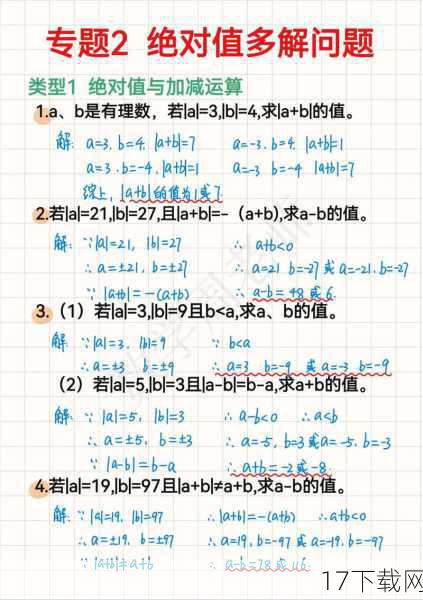 专题2 绝对值多解问题
类型1 绝对值与加减运算
1.a、b是有理数，若|a|=3,|b|=4,求|a+b|的值。
解: a=3. b=4. |a+b|=7 a=-3. b=4. |a+b|=1
a=3. b=-4. |a+b|=1 a=-3 b=-4 |a+b|=7
综上, |a+b|的值为1或7.
2.若|a|=21,|b|=27,且|a+b|=-（a+b),求a-b的值。
解: ∵|a|=21, |b|=27 ∴ a+b<0
∴ a=±21, b=±27 ∴ a=21 b=-27 或 a=-21. b=-27
∵ |a+b|=-(a+b) ∴ a-b=48 或 6.
3.（1）若|a|=3,|b|=9且b<a,求a、b的值。
解: ∵|a|=3, |b|=9 ∵ b<a
∴ a=±3 b=±9 ∴ a=3 b=-9 或 a=-3 b=-9
（2）若|a|=5,|b|=3且|a-b|=b-a,求a+b的值。
解: ∵ |a|=5, |b|=3 ∴ a-b<0 ∴ a<b
∴ a=±5, b=±3 ∴ a=-5, b=3 或 a=-5, b=-3
∵ |a-b|=b-a ∴ a+b=-2或-8.
4.若|a|=19,|b|=97且|a+b|≠a+b,求a-b的值。
解: ∵|a|=19, |b|=97 ∴ |a+b|=-(a+b) ∴ a+b<0
∴ a=±19, b=±97 ∴ a=19, b=-97 或 a=-19. b=-97
∵ |a+b|≠a+b ∴ a-b=78 或 116.
17下载网